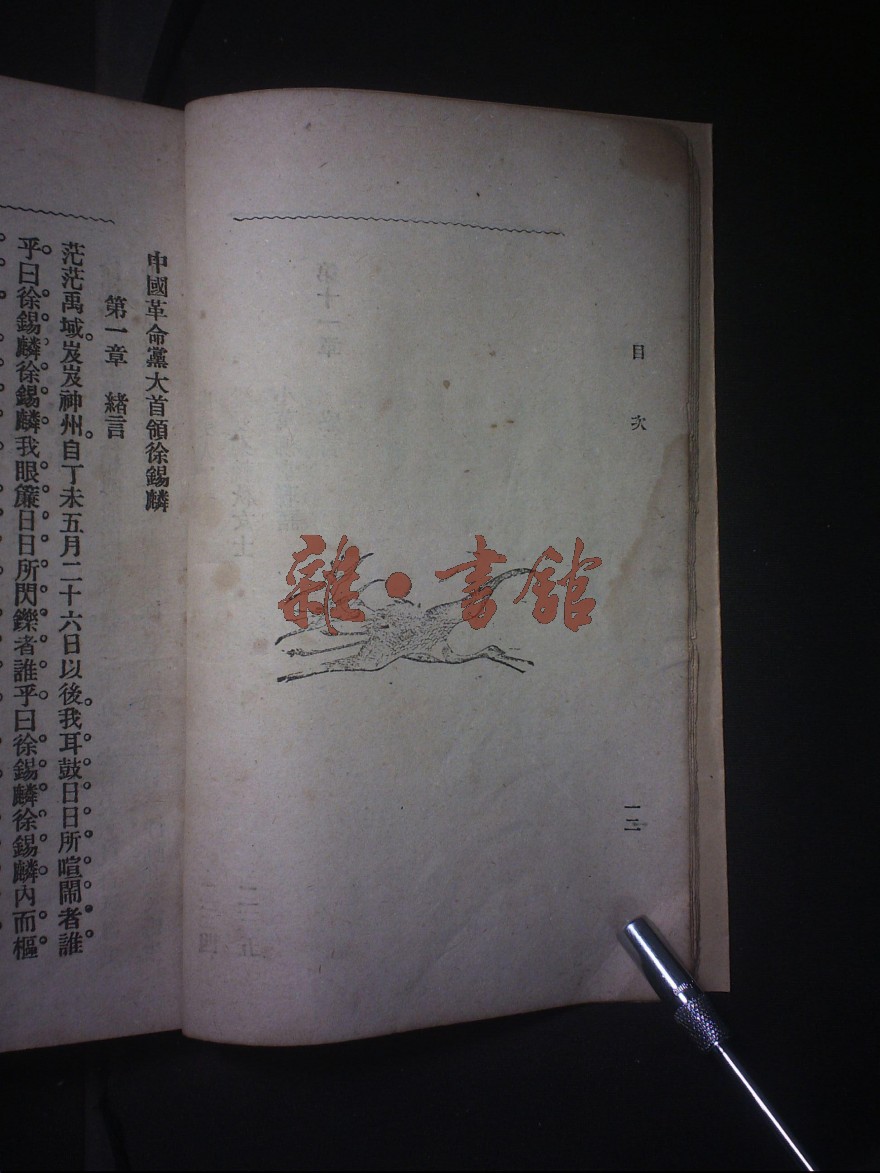 目次
一二
雜·書館
中國革命黨大首領徐錫麟
第一章 緒言
茫茫禹域。岌岌神州。自丁未五月二十六日以後。我耳鼓日日所喧鬧者誰
乎。曰徐錫麟徐錫麟。我眼簾日日所閃鑠者誰乎。曰徐錫麟徐錫麟。內而樞